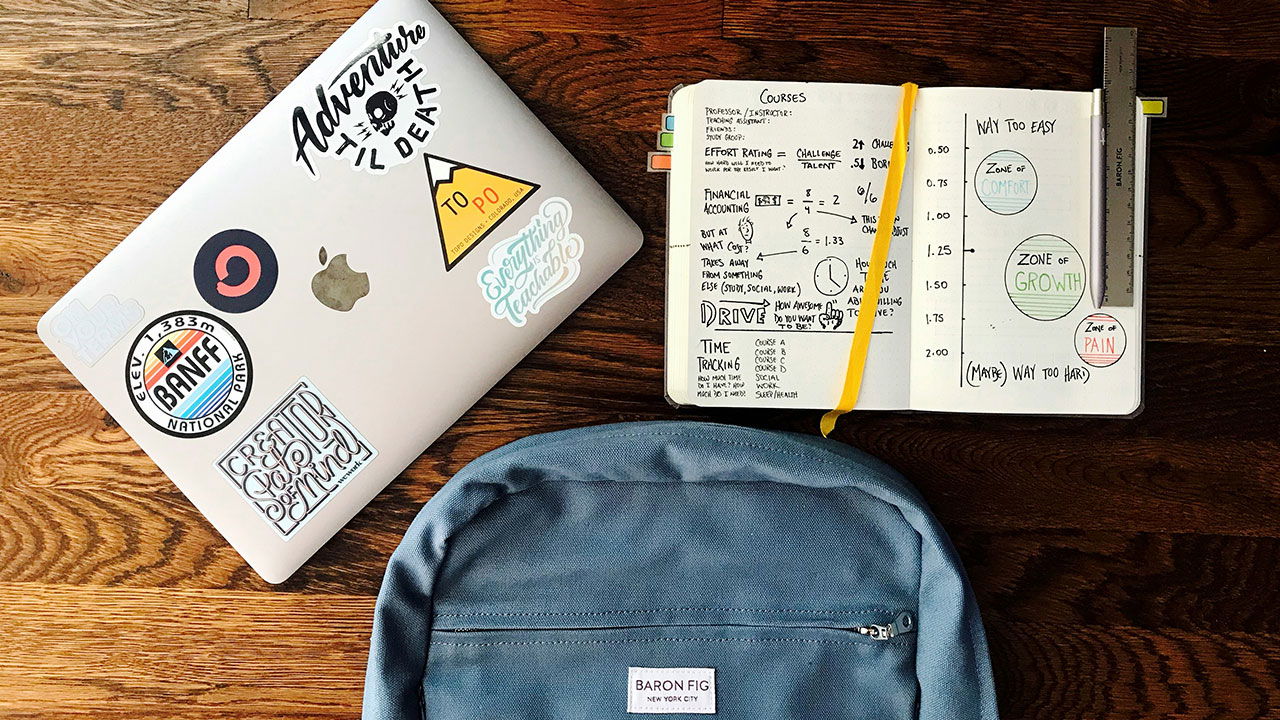 Adventure
'TIL DEATH
TOPO
TOPO DESIGNS • COLORADO, USA
Everything
is
Teachable
ELEV. 1,383m
BANFF
NATIONAL PARK
CREATOR
OF
Mind
wework
COURSES
PROFESSOR / INSTRUCTOR:
TEACHING ASSISTANT:
FRIENDS:
STUDY GROUP:
EFFORT RATING = CHALLENGE
TALENT
2↑
.5↓
HOW HARD WILL I NEED TO
WORK FOR THE RESULT I WANT?
FINANCIAL
ACCOUNTING
= 8/4 = 2
6/6
THIS
BUT AT
WHAT COST?
8/6 = 1.33
TAKES AWAY
FROM SOMETHING
ELSE (STUDY, SOCIAL, WORK)
HOW MUCH
TIME
ARE YOU
DRIVE
HOW AWESOME
DO YOU WANT
TO BE?
TIME
TRACKING
HOW MUCH TIME
DO I HAVE? HOW
MUCH DO I NEED?
COURSE A
COURSE B
COURSE C
COURSE D
SOCIAL
WORK
SLEEP/HEALTH
WAY TOO EASY
0.50
0.75
1.00
1.25
1.50
1.75
2.00
ZONE OF
COMFORT
ZONE OF
GROWTH
ZONE OF
PAIN
(MAYBE) WAY TOO HARD
BARON FIG
BARON FIG
NEW YORK CITY